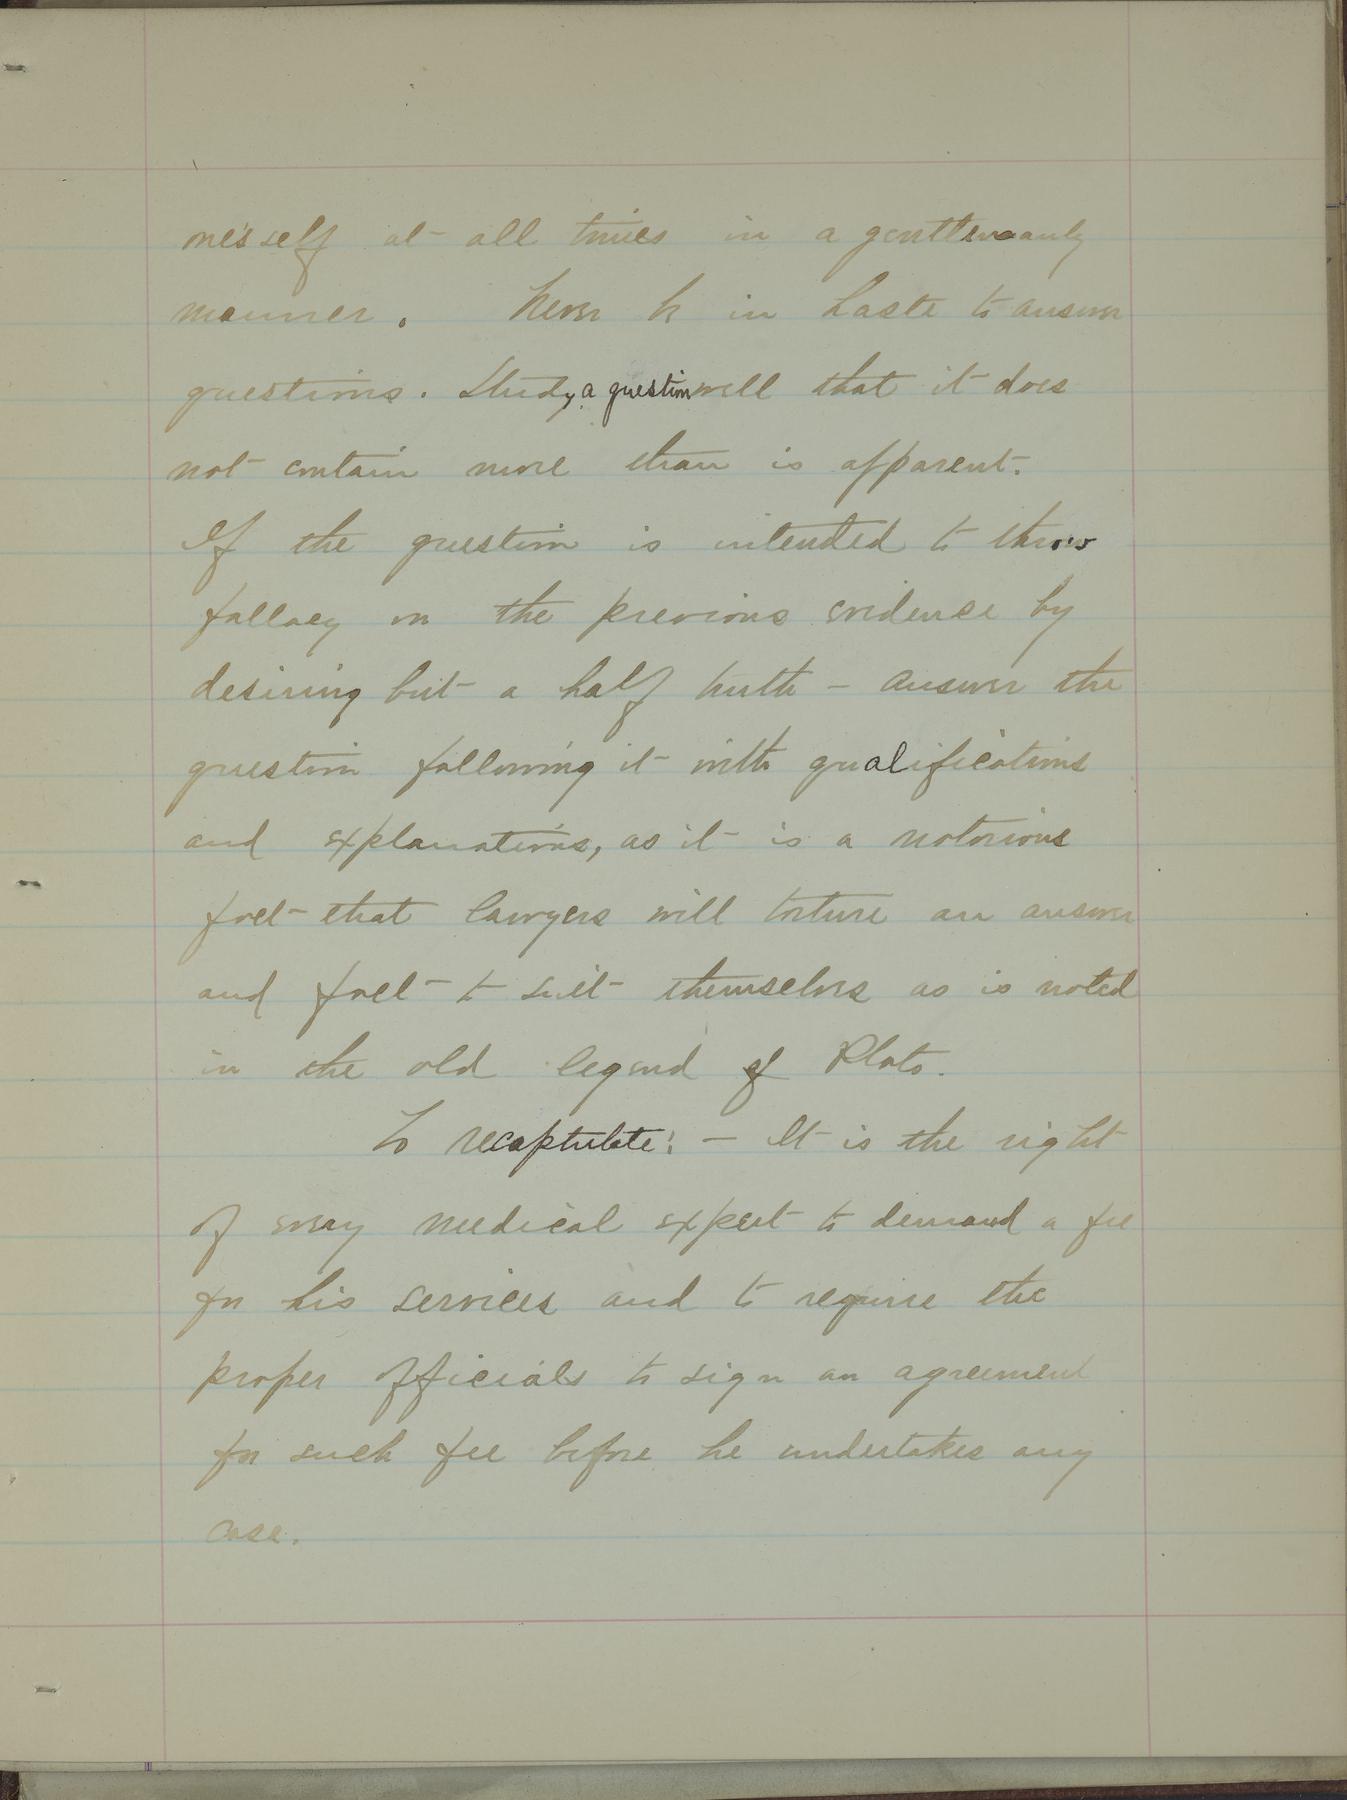 one's self at all times in a gentlemanly
manner. Never be in haste to answer
questions. Study, a question well that it does
not contain more than is apparent.
If the question is intended to throw
fallacy on the previous evidence by
desiring but a half truth – answer the
question following it with qualifications
and explanations, as it is a notorious
fact that lawyers will torture an answer
and fact to suit themselves as is noted
in the old legend of Plato.
To recaptulate: – It is the right
of every medical expert to demand a fee
for his services and to require the
proper officials to sign an agreement
for such fee before he undertakes any
case.